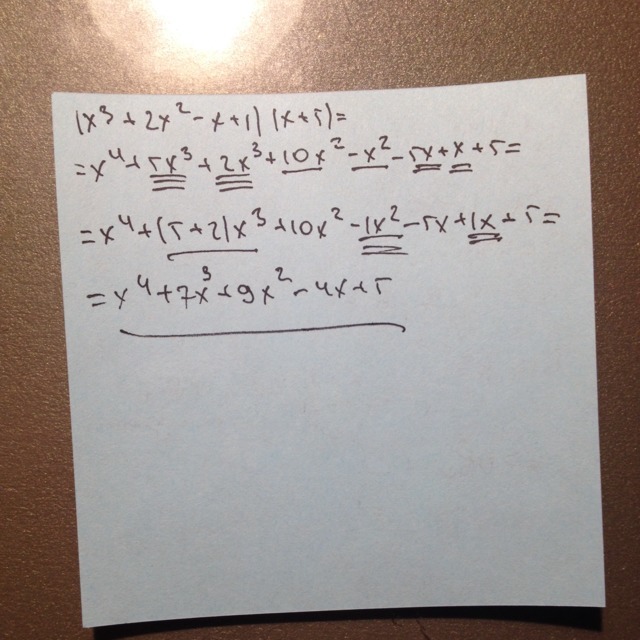 (x³ + 2x² - x + 1) (x + 5) =
= x⁴ + 5x³ + 2x³ + 10x² - x² - 5x + x + 5 =
= x⁴ + (5 + 2)x³ + 10x² - 1x² - 5x + 1x + 5 =
= x⁴ + 7x³ + 9x² - 4x + 5